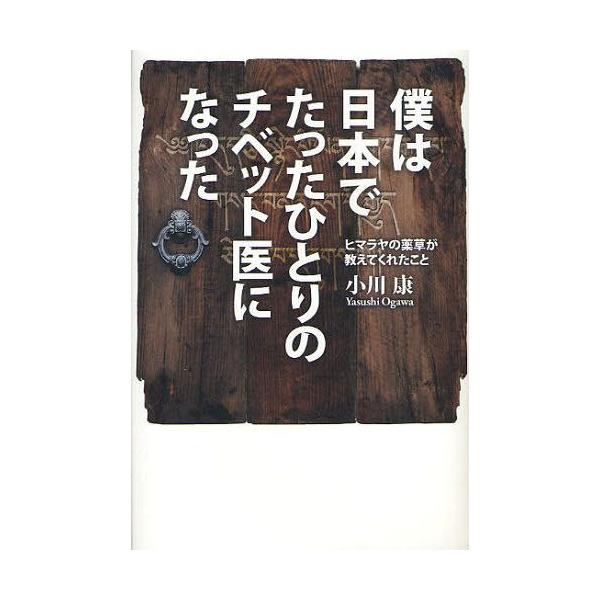 僕は
日本で
たったひとりの
チベット医に
なった
ヒマラヤの薬草が
教えてくれたこと
小川 康
Yasushi Ogawa